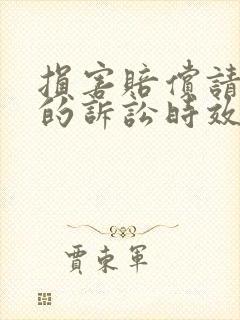 損害賠償請
的訴訟時效
賈東軍